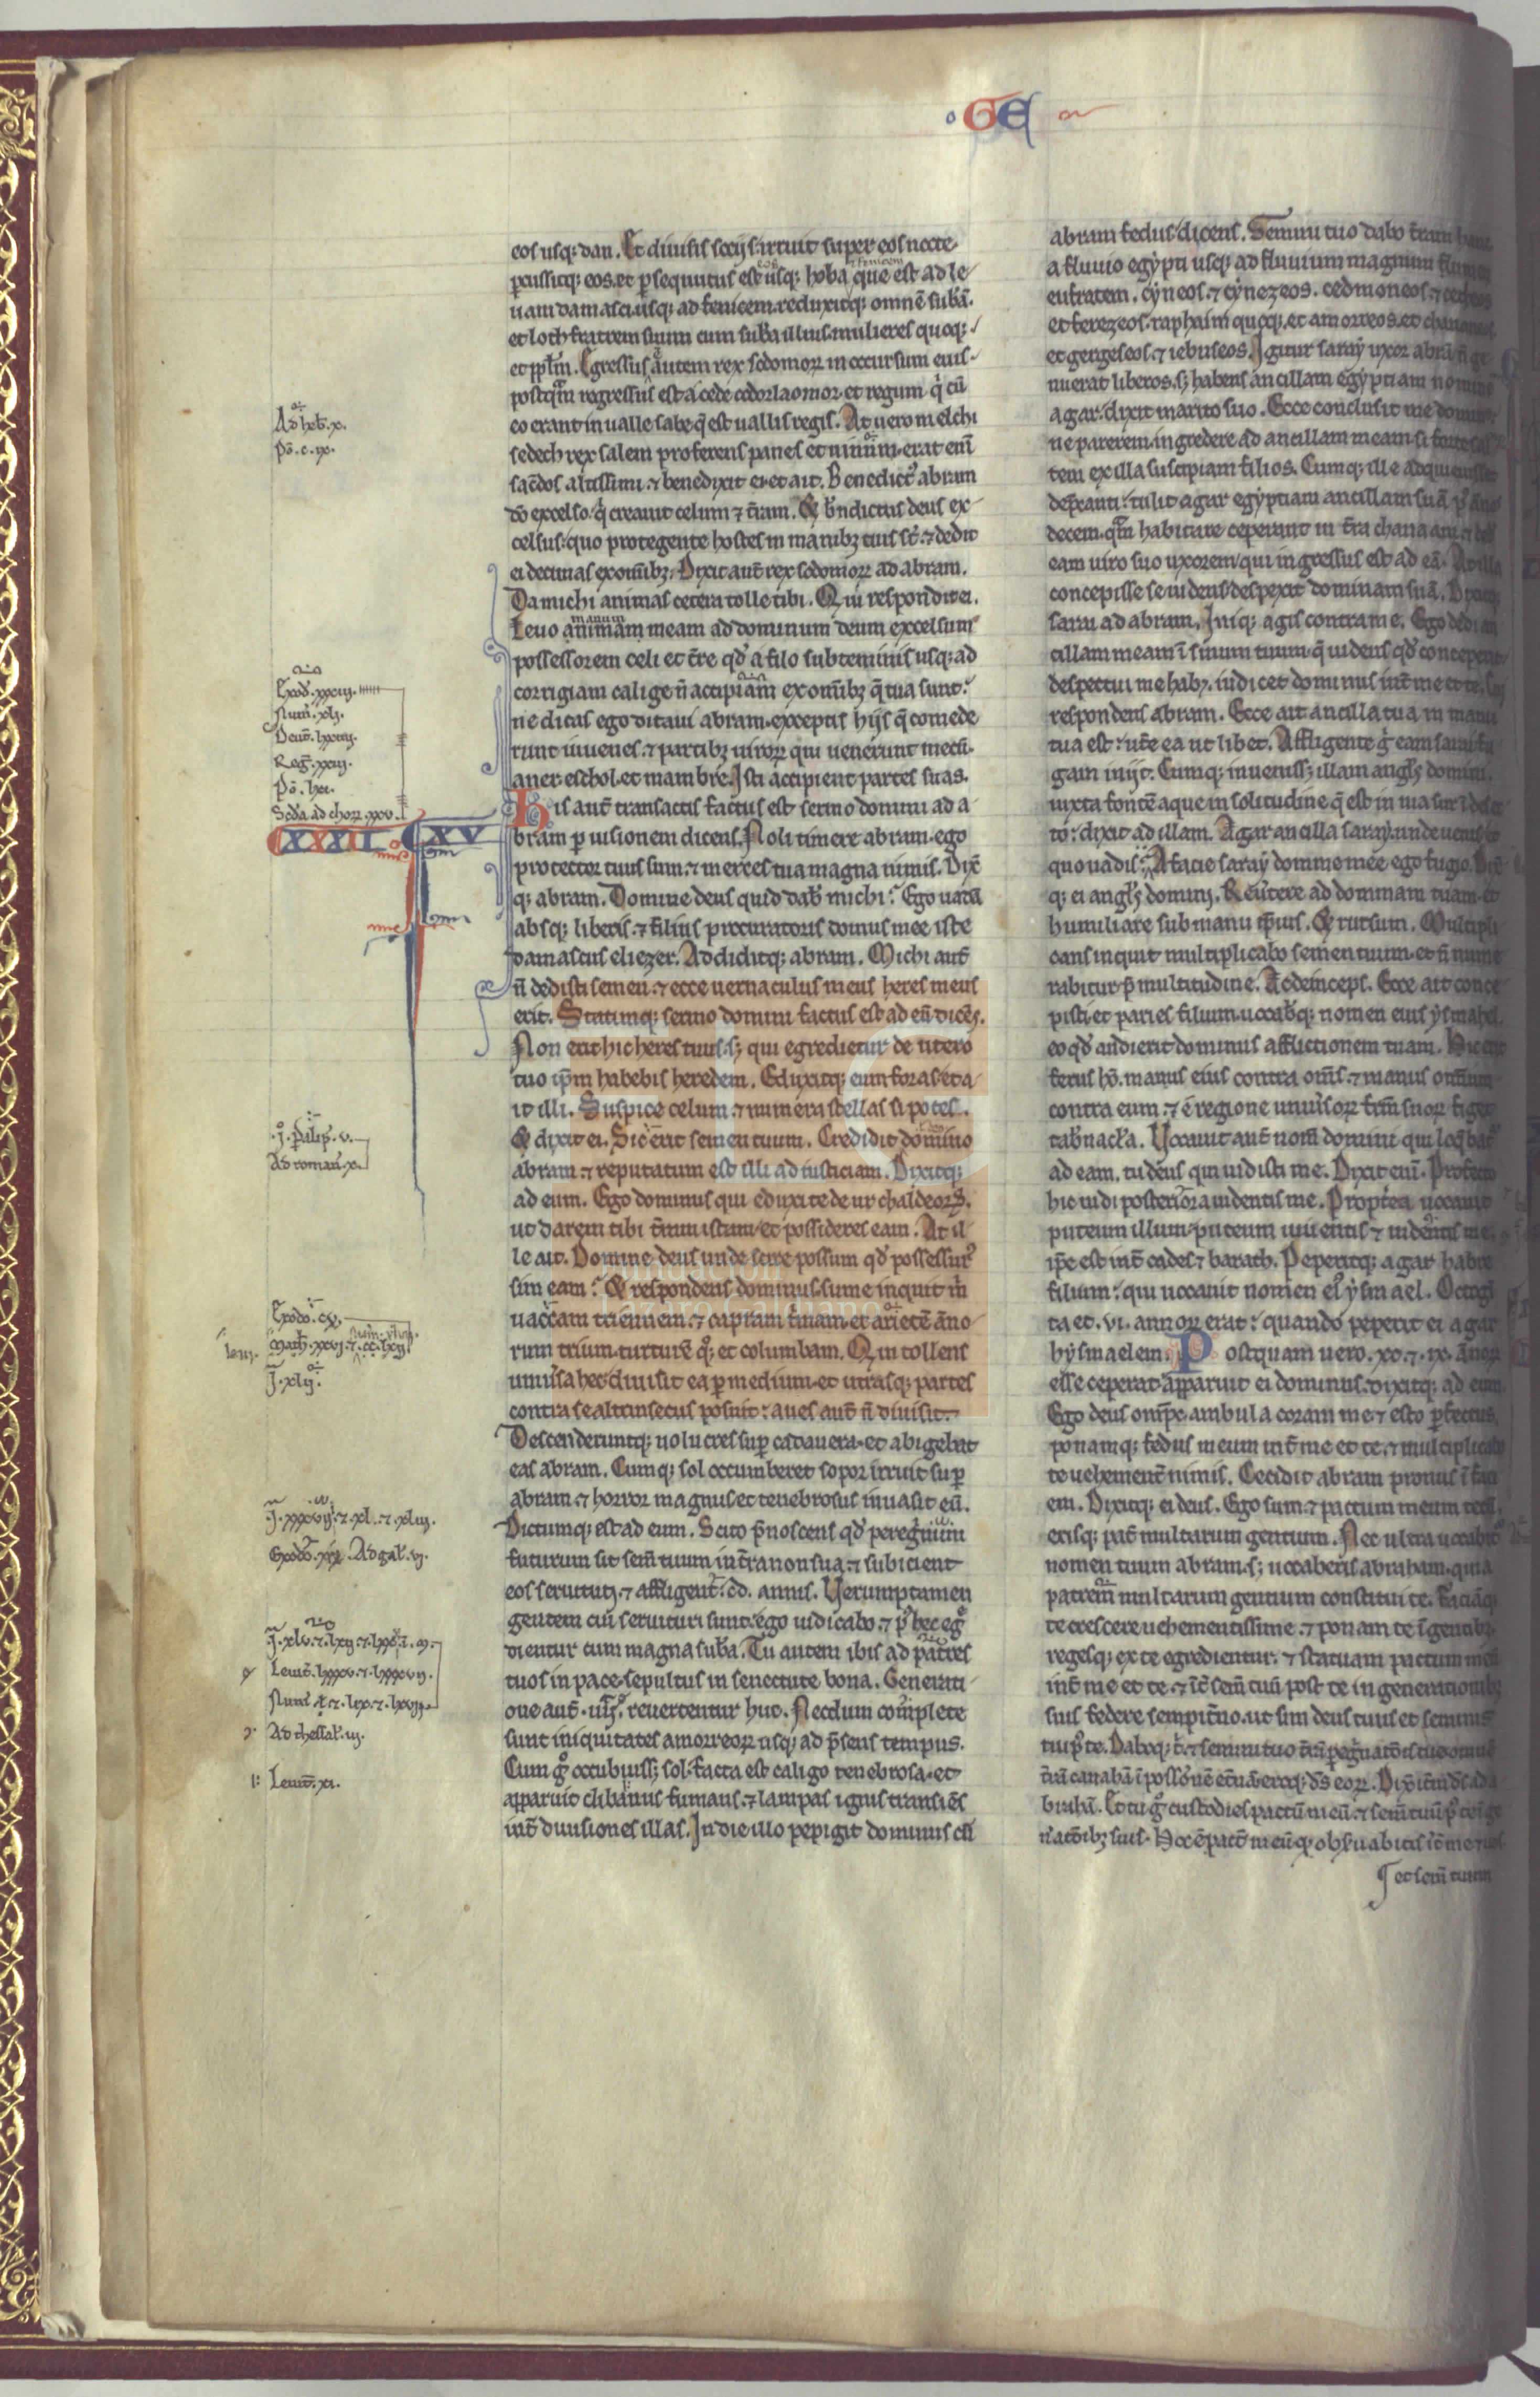 GE
eos usq; dan. Et diuisis sociis irruit super eos nocte
percussitq; eos. et psequutus est eos usq; hoba ⁊ fenicem que est ad le
uam damasci usq; ad fenicem. reduxitq; omnē subam.
et loth fratrem suum cum suba illius. mulieres quoq;
et pplm. Egressus autem rex sodomoꝝ in occursum eius.
postqm regressus est a cede codorlaomor. et regum q cū
eo erant in ualle sabe q est uallis regis. At uero melchi
sedech rex salem proferens panes et uinum. erat enī
sacdos altissimi. ⁊ benedixit ei. et ait. Benedict abram
do excelso. q creauit celum ⁊ tram. Et bndictus deus ex
celsus. quo protegente hostes in manibȝ tuis st. ⁊ dedit
ei decimas ex omibȝ. Dixit aut rex sodomoꝝ ad abram.
Da michi animas cetera tolle tibi. Qui respondit ei.
manum
Leuo animam meam ad dominum deum excelsum
possessorem celi et tre qd a filo subteminis usq; ad
corrigiam calige n accipiam ex omibȝ q tua sunt.
ne dicas ego ditaui abram. exceptis hijs q comede
runt iuuenes. ⁊ partibȝ uiroꝝ qui uenerunt mecū.
aner. eschol. et mambre. Isti accipient partes suas.
His aut transactis factus est sermo domini ad a
bram p uisionem dicens. Noli timere abram. ego
protector tuus sum. ⁊ merces tua magna nimis. Dix
q; abram. Domine deus quid dab michi? Ego uadā
absq; liberis. ⁊ filius procuratoris domus mee iste
damascus eliezer. Addiditq; abram. Michi aut
n dedisti semen. ⁊ ecce uernaculus meus heres meus
erit. Statimq; sermo domini factus est ad eū dicēs.
Non erit hic heres tuus. sȝ qui egredietur de utero
tuo ipm habebis heredem. Eduxitq; eum foras. et a
it illi. Suspice celum. ⁊ numera stellas si potes.
Et dixit ei. Sic erit semen tuum. Credidit domino
abram. ⁊ reputatum est illi ad iusticiam. Dixitq;
ad eum. Ego dominus qui eduxi te de ur chaldeoꝝ.
ut darem tibi tram istam. et possideres eam. At il
le ait. Domine deus unde scire possum qd possessur
sim eam? Et respondens dominus. sume inquit m
uaccam triennem. ⁊ capram trimam. et arietē āno
rum trium. turturē q. et columbam. Qui tollens
uniusa hec diuisit ea p medium. et utrasq; partes
contra se altrinsecus posuit. aues aut n diuisit.
Descenderuntq; uolucres sup cadauera. et abigebat
eas abram. Cumq; sol occumberet sopor irruit sup
abram ⁊ horror magnus et tenebrosus inuasit eū.
Dictumq; est ad eum. Scito pnoscens qd peregrinum
futurum sit sem tuum in tra non sua. ⁊ subicient
eos seruituti. ⁊ affligent. cd. annis. Uerumptamen
gentem cui seruituri sunt. ego iudicabo. ⁊ p hec eg
dientur cum magna suba. Tu autem ibis ad patres
tuos in pace. sepultus in senectute bona. Generati
one aut. reuertentur huc. Necdum complete
sunt iniquitates amorreoꝝ usq; ad psens tempus.
Cum g occubuiss; sol. facta est caligo tenebrosa. et
apparuit clibanus fumans. ⁊ lampas ignis transiēs
int diuisiones illas. In die illo pepigit dominus cū
abram fedus dicens. Semini tuo dabo tram hanc
a fluuio egypti usq; ad fluuium magnum flumen
eufratem. cyneos. ⁊ cynezeos. cedmoneos. ⁊
et ferezeos. raphaim quoq;. et amorreos. et chananeos
et gergeseos. ⁊ iebuseos. Igitur saray uxor abrā n ge
nuerat liberos. sȝ habens ancillam egyptiam nomine
agar. dixit marito suo. Ecce conclusit me dominus
ne parerem. ingredere ad ancillam meam. si forte sal
tem ex illa suscipiam filios. Cumq; ille adquiesset
depcanti. tulit agar egyptiam ancillam suā p ānos
decem. qm habitare ceperant in tra chanaan. ⁊
eam uiro suo uxorem. qui ingressus est ad eā. At illa
concepisse se uidens despexit dominam suā. Dixitq;
sarai ad abram. Iniq; agis contra me. Ego dedi an
cillam meam ī sinum tuum. q uidens qd conceperit
despectui me habȝ. iudicet dominus int me et te.
respondens abram. Ecce ait ancilla tua in manu
tua est. ute ea ut libet. Affligente g eam sarai fu
gam iniit. Cumq; inueniss; illam angls domini
iuxta fontē aque in solitudine q est in uia sur ī des
to. dixit ad illam. Agar ancilla saray. unde uenis
quo uadis? A facie saray domine mee ego fugio. Dix
q; ei angls domini. Reutere ad dominam tuam. et
humiliare sub manu ipius. Et rursum. Multipli
cans inquit multiplicabo semen tuum. et n nume
rabitur p multitudine. Ac deinceps. Ecce ait conce
pisti. et paries filium. uocabq; nomen eius ysmahel.
eo qd audierit dominus afflictionem tuam. Hic erit
ferus ho. manus eius contra oms. ⁊ manus omnium
contra eum. ⁊ e regione uniusoꝝ frm suoꝝ figet
tabnacla. Uocauit aut nom domini qui loqbat
ad eam. tu deus qui uidisti me. Dixit eni. Profecto
hic uidi posteriora uidentis me. Proptea uocauit
puteum illum. puteum uiuentis ⁊ uidentis me.
ipe est int cades ⁊ barath. Peperitq; agar habre
filium. qui uocauit nomen ei ysmael. Octogi
ta et. vi. annoꝝ erat. quando peperit ei agar
hysmaelem. Postquam uero. xc. ⁊. ix. ānoꝝ
esse ceperat apparuit ei dominus. dixitq; ad eum
Ego deus omps. ambula coram me. ⁊ esto pfectus.
ponamq; fedus meum int me et te. ⁊ multiplicabo
te uehement nimis. Cecidit abram pronus ī faci
em. Dixitq; ei deus. Ego sum. ⁊ pactum meum tecū.
erisq; pat multarum gentium. Nec ultra uocabit
nomen tuum abram. sȝ uocaberis abraham. quia
patrem multarum gentium constitui te. Faciāq;
te crescere uehementissime. ⁊ ponam te ī gentibȝ.
regesq; ex te egredientur. ⁊ statuam pactum meū
int me et te. ⁊ īt sem tuū post te in generationibȝ
suis federe sempitno. ut sim deus tuus et seminis
tui p te. Daboq; t. ⁊ semini tuo trā pegnatōis tue. omnē
trā canaban ī possōnē etnā. eroq; ds eoꝝ. Dix itm ds ad a
braham. Et tu g custodies pactū meū. ⁊ sem tuū p te ī ge
natōibȝ suis. Hoc ē pactū meū q obsuabitis īt me ⁊ uos
et sem tuum
Ad heb. x.
Po. c. ix.
Exod. xxxiij.
Num. xlj.
Deut. lxxiij.
Reg. xxiij.
Po. lxx.
Scda ad choꝝ. xxv.
XXXII XV
j. palip. v.
Ad roman. x.
Exodo. cv.
J. xlij.
J. xxxviij. ⁊. xl. ⁊. xliij.
Exodo. xix. Ad gal. vj.
Leuit. lxxxv. ⁊. lxxxvij.
Ad thessal. iij.
Leuit. xi.